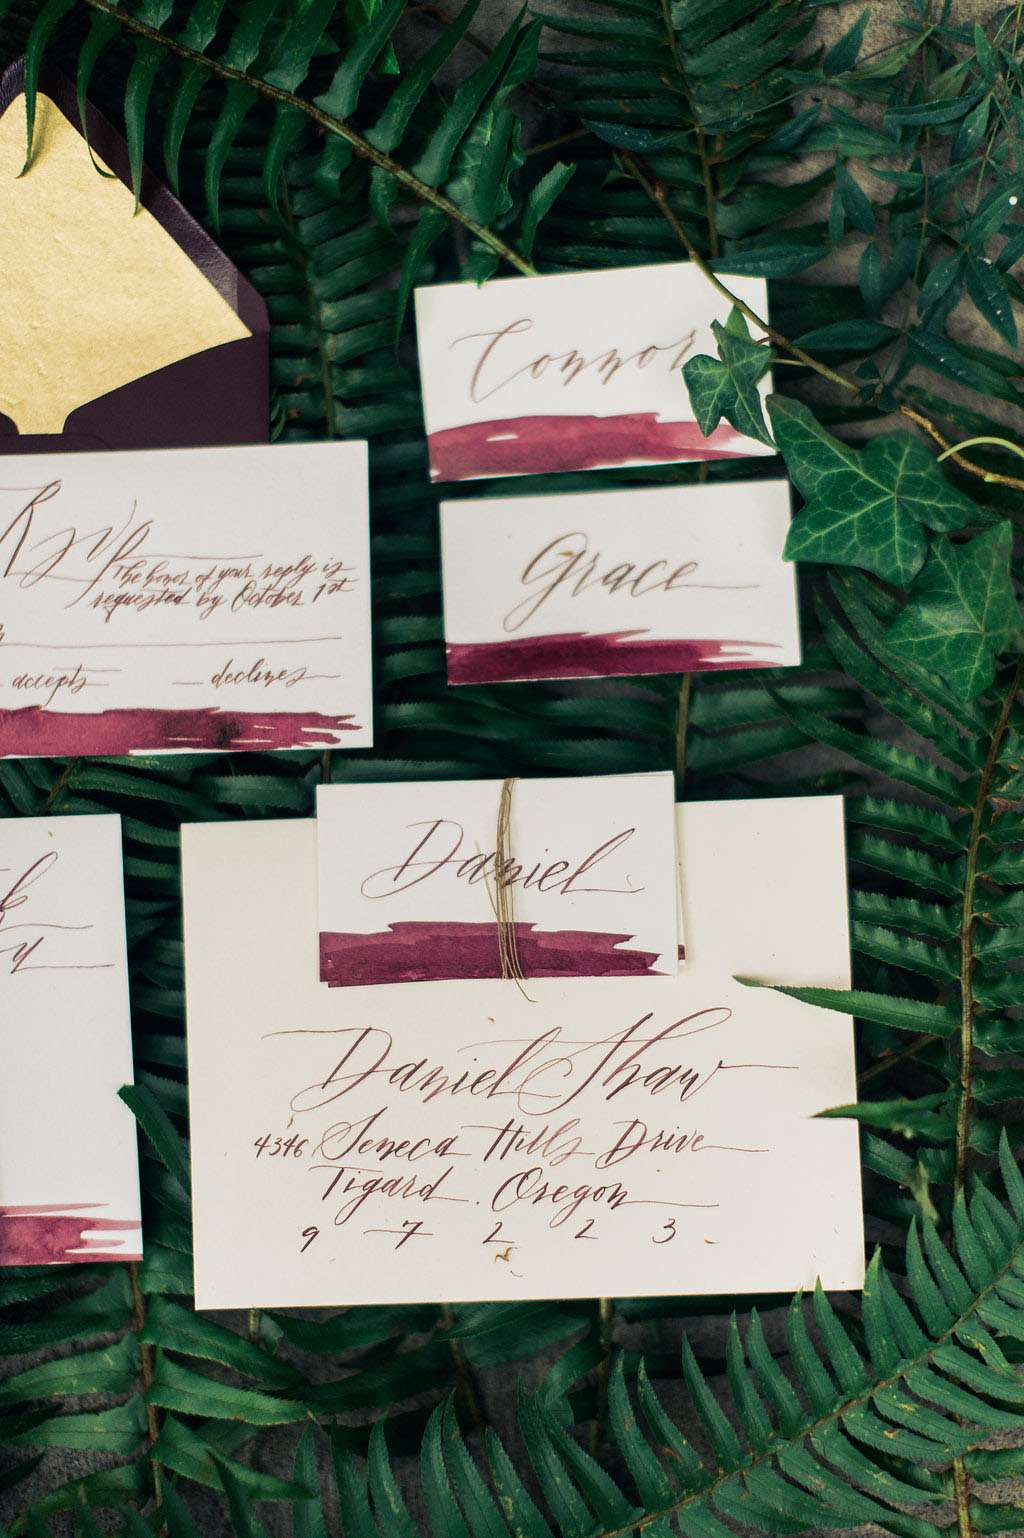 Connor
Grace
RSVP
The honor of your reply is
requested by October 1st
accepts declines
Daniel
Daniel Shaw
4346 Seneca Hills Drive
Tigard, Oregon
9 7 2 2 3